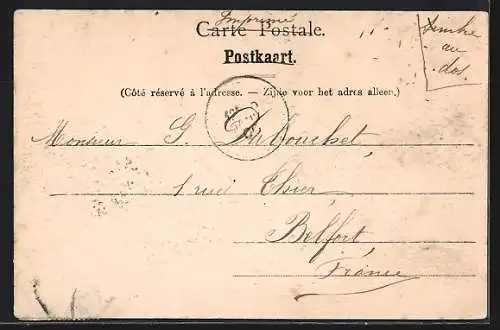 Imprimé
Carte Postale.
Postkaart.
timbre
au
dos
(Côté réservé à l'adresse. — Zijde voor het adres alleen.)
Monsieur G.
1 rue Thier,
Belfort,
France